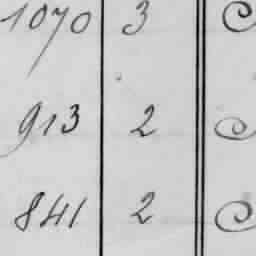 1070 3 C
913 2 C
841 2 C